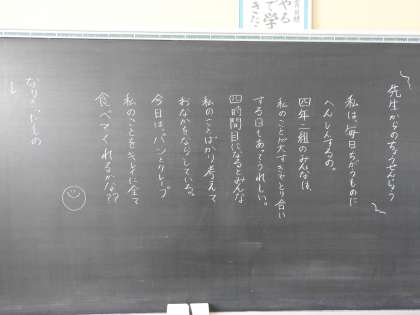 先生からのちょうせんじょう
私は、毎日ちがうものに
へんしんするの。
四年二組のみんなは、
私のことが大すきでとり合い
する日もあってうれしい。
四時間目になるとみんな
私のことばかり考えて
おなかをならしている。
今日は、パンとクレープ
私のことをキレイに全て
食べてくれるかな??
なりきりもの